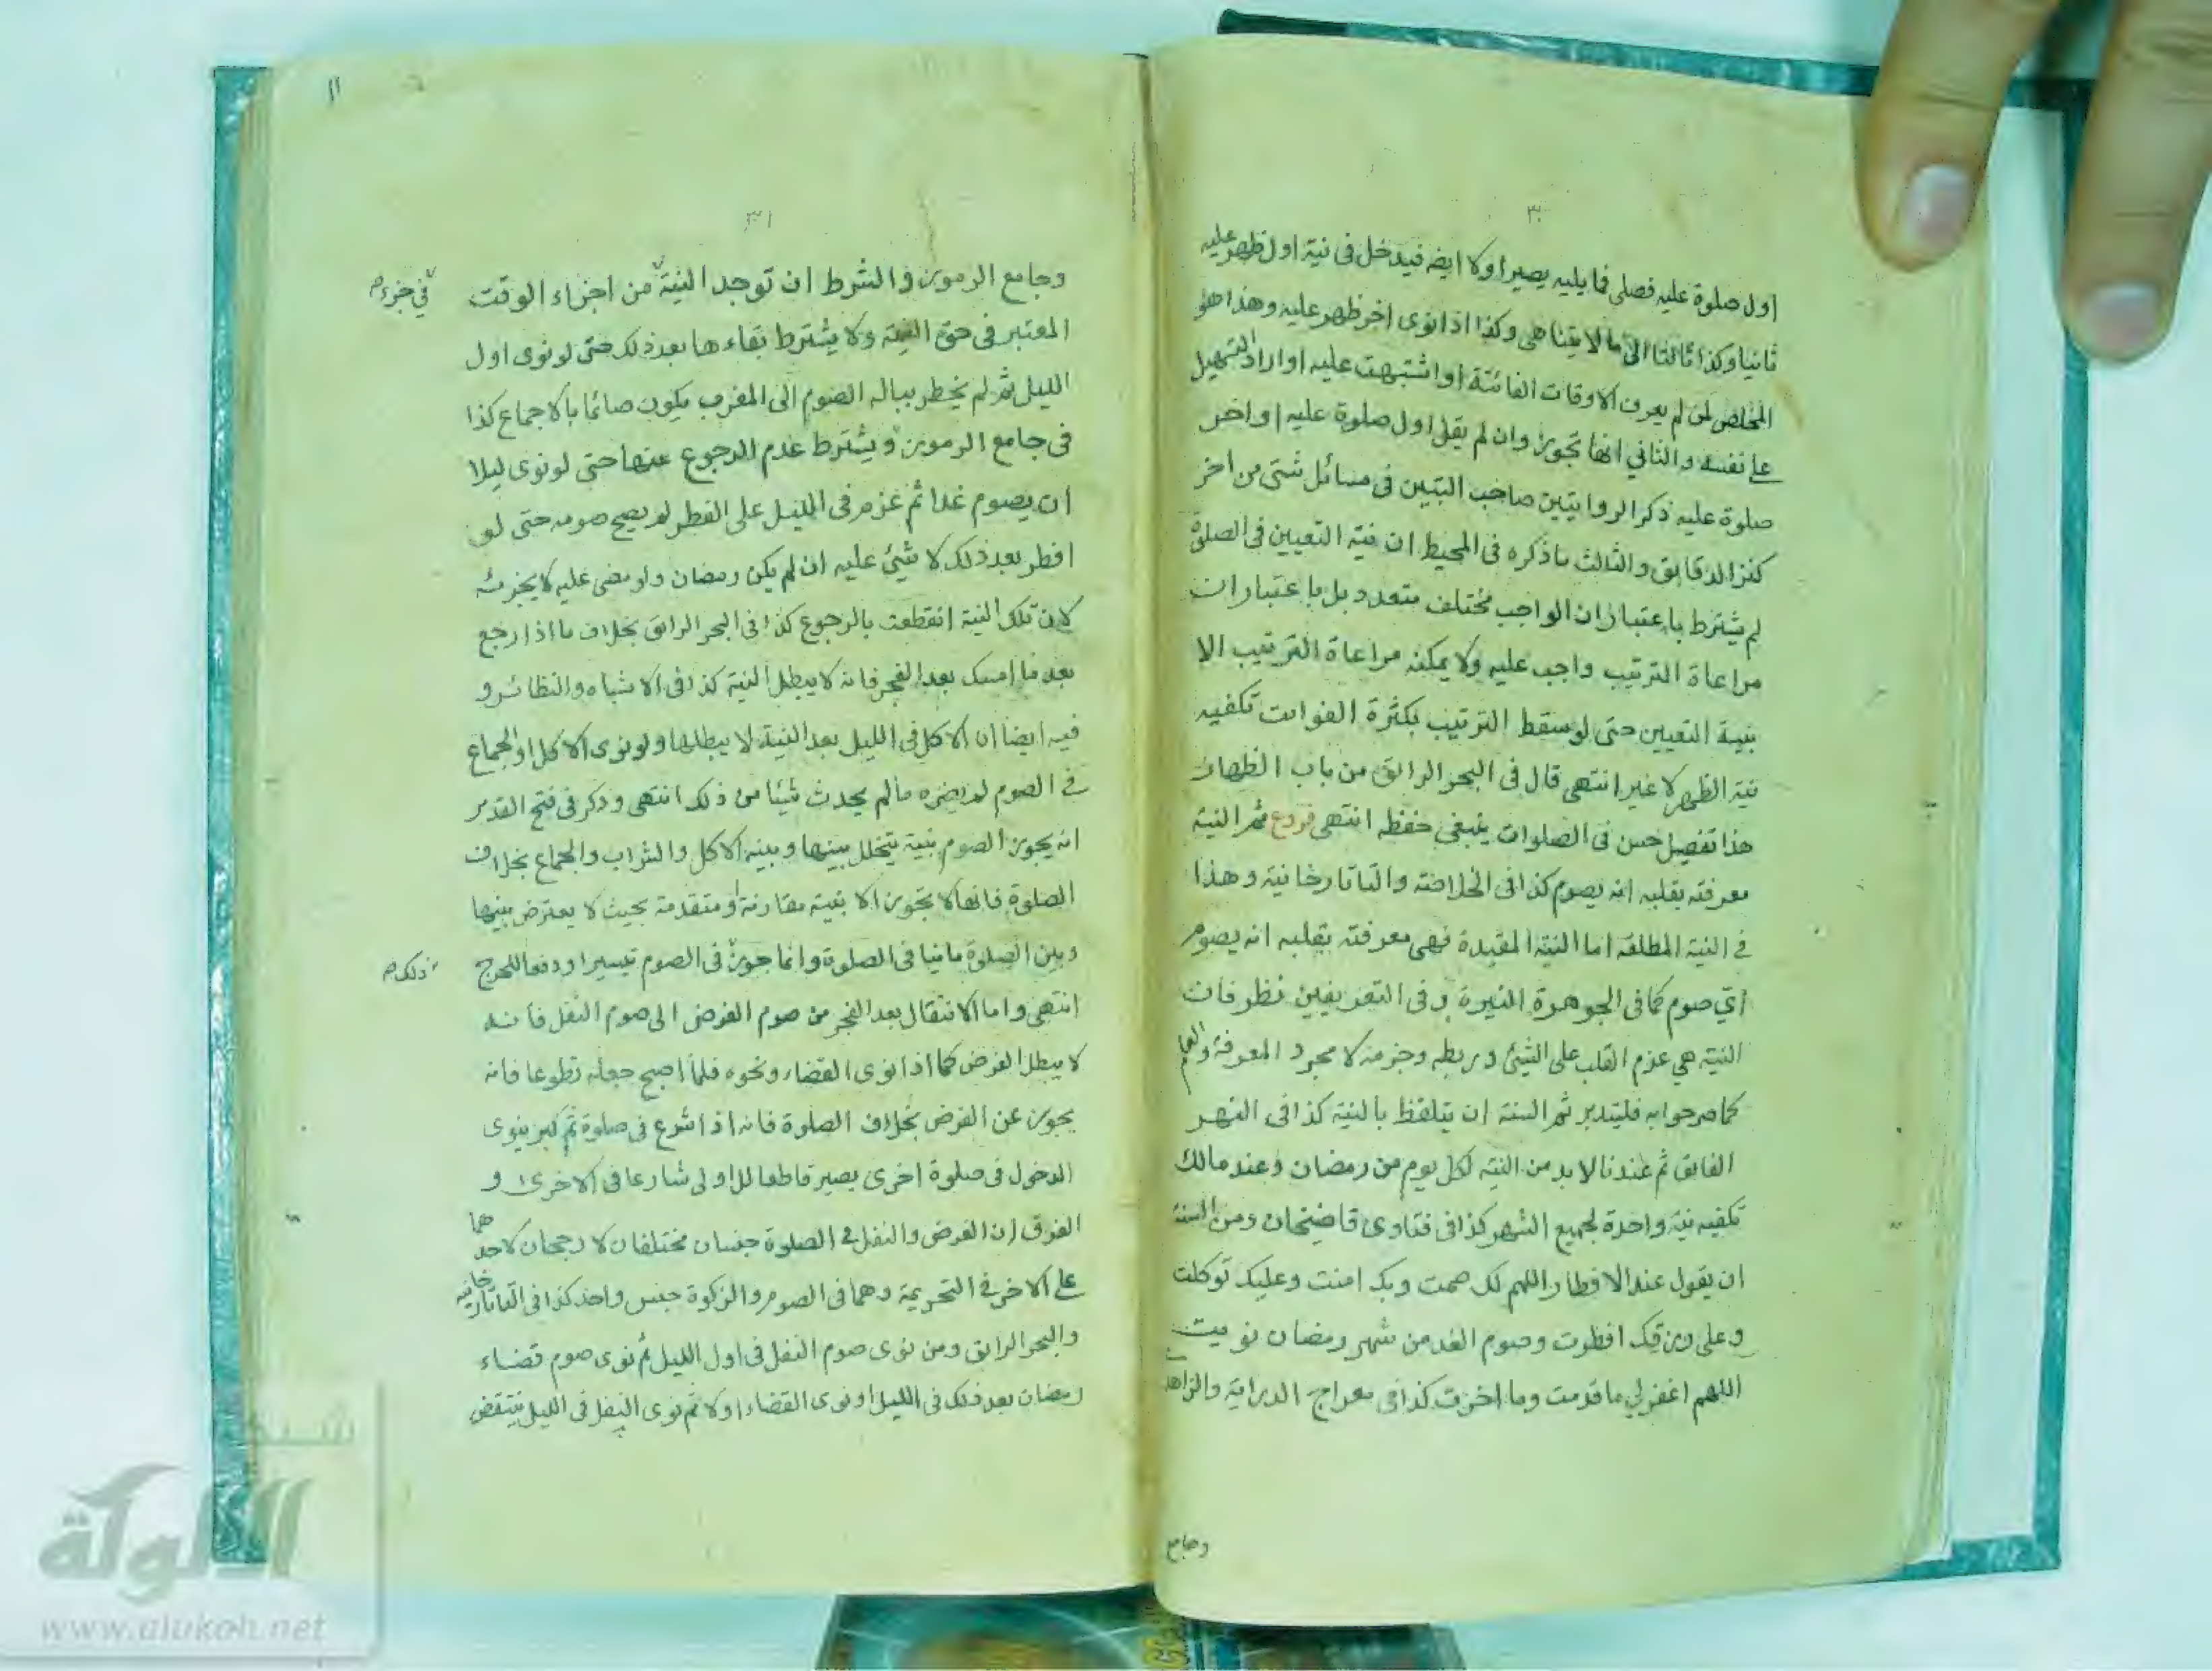 ٣٠
اول صلوة عليه فصلى فما يليه يصير اولا ايضه فيدخل فى نية اول ظهر عليه
ثانيا وكذا ثالثا الى ما لا يتناهى وكذا اذا نوى اخر ظهر عليه وهذا هو
المخلص لمن لم يعرف الاوقات الفائتة او اشتبهت عليه او اراد التسهيل
على نفسه والثاني انها تجوز وان لم يقل اول صلوة عليه او اخر
صلوة عليه ذكر الروايتين صاحب التبين فى مسائل شتى من اخر
كنز الدقايق والثالث ما ذكره فى المحيط ان نية التعيين فى الصلوة
لم يشترط باعتبار ان الواجب مختلف متعدد بل باعتبار ان
مراعاة الترتيب واجب عليه ولا يمكنه مراعاة الترتيب الا
بنية التعيين حتى لو سقط الترتيب بكثرة الفوائت تكفيه
نية الظهر لا غير انتهى قال فى البحر الرايق من باب الظهار
هذا تفصيل حسن فى الصلوات ينبغي حفظه انتهى فروع ثم النية
معرفته بقلبه انه يصوم كذا فى الخلاصة والتاتارخانية وهذا
فى النية المطلقة اما النية المقيدة فهى معرفته بقلبه انه يصوم
اي صوم كما فى الجوهرة النيرة وفى التعريفين نظر فان
النية هي عزم القلب على الشيئ وربطه وجزمه لا مجرد المعرفة والعلم
كما صرحوا به فليتدبر ثم السنة ان يتلفظ بالنية كذا فى النهر
الفايق ثم عندنا لا بد من النية لكل يوم من رمضان وعند مالك
تكفيه نية واحدة لجميع الشهر كذا فى فتاوى قاضيخان ومن السنة
ان يقول عند الافطار اللهم لك صمت وبك امنت وعليك توكلت
وعلى رزقك افطرت وصوم الغد من شهر رمضان نويت
اللهم اغفر لي ما قدمت وما اخرت كذا فى معراج الدراية والزاهدى
وجامع
١١
٣١
وجامع الرموز والشرط ان توجد النية من اجزاء الوقت
فى جزء صح
المعتبر فى حق النية ولا يشترط بقاءها بعد ذلك حتى لو نوى اول
الليل ثم لم يخطر بباله الصوم الى المغرب يكون صائما بالاجماع كذا
فى جامع الرموز ويشترط عدم الرجوع عنها حتى لو نوى ليلا
ان يصوم غدا ثم عزم فى الليل على الفطر لم يصح صومه حتى لو
افطر بعد ذلك لا شيئ عليه ان لم يكن رمضان ولو مضى عليه لا يجزئه
لان تلك النية انقطعت بالرجوع كذا فى البحر الرايق بخلاف ما اذا رجع
بعد ما امسك بعد الفجر فانه لا يبطل النية كذا فى الاشباه والنظائر و
فيه ايضا ان الاكل فى الليل بعد النية لا يبطلها ولو نوى الاكل او الجماع
فى الصوم لم يضره ما لم يحدث شيئا من ذلك انتهى وذكر فى فتح القدير
انه يجوز الصوم بنية يتخلل بينها وبينه الاكل والشراب والجماع بخلاف
الصلوة فانها لا تجوز الا بنية مقارنة او متقدمة بحيث لا يعترض بينها
وبين الصلوة ما نيا فى الصلوة وانما جوز فى الصوم تيسيرا ودفعا للحرج
ذلك صح
انتهى واما الانتقال بعد الفجر من صوم الفرض الى صوم النفل فانه
لا يبطل الفرض كما اذا نوى القضاء ونحوه فلما اصبح جعله تطوعا فانه
يجوز عن الفرض بخلاف الصلوة فانه اذا شرع فى صلوة ثم كبر ينوى
الدخول فى صلوة اخرى يصير قاطعا للاولى شارعا فى الاخرى و
الفرق ان الفرض والنفل فى الصلوة جنسان مختلفان لا رجحان لاحدهما
على الاخر فى التحريمة وهما فى الصوم والزكوة جنس واحد كذا فى التاتارخانيه
والبحر الرايق ومن نوى صوم النفل فى اول الليل ثم نوى صوم قضاء
رمضان بعد ذلك فى الليل او نوى القضاء اولا ثم نوى النفل فى الليل ينتقض
شبكة
الألوكة
www.alukah.net